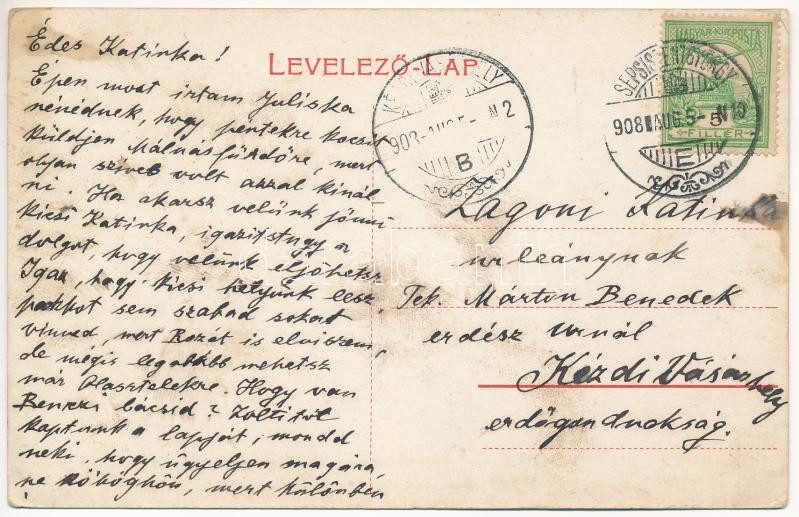 LEVELEZŐ-LAP
Édes Katinka!
Épen most irtam Juliska
nénédnek, hogy pentekre kocsit
küldjen Málnásfürdőre, mert
olyan szives volt azzal kinál
ni. Ha akarsz velünk jönni
kicsi Katinka, igazitstugy a
dolgot, hogy velünk eljöhetsz.
Igaz, hogy kicsi helyünk lesz,
pakkot sem szabad sokat
vinned, mert Rozát is elviszem,
de mégis legalább mehetsz
már Olasztelekre. Hogy van
Benczi bácsid? Zoltitól
kaptunk a lapját, mondd
neki, hogy ügyeljen magára
ne köhögjön, mert különben
MAGYAR KIR. POSTA
5
FILLER
SEPSISZENTGYÖRGY
908 AUG. 5 - N10
E
908 AUG 5 - N 2
B
Zagoni Katinka
urleánynak
Tek. Márton Benedek
erdész urnál
Kézdi Vásárhely
erdőgondnokság.